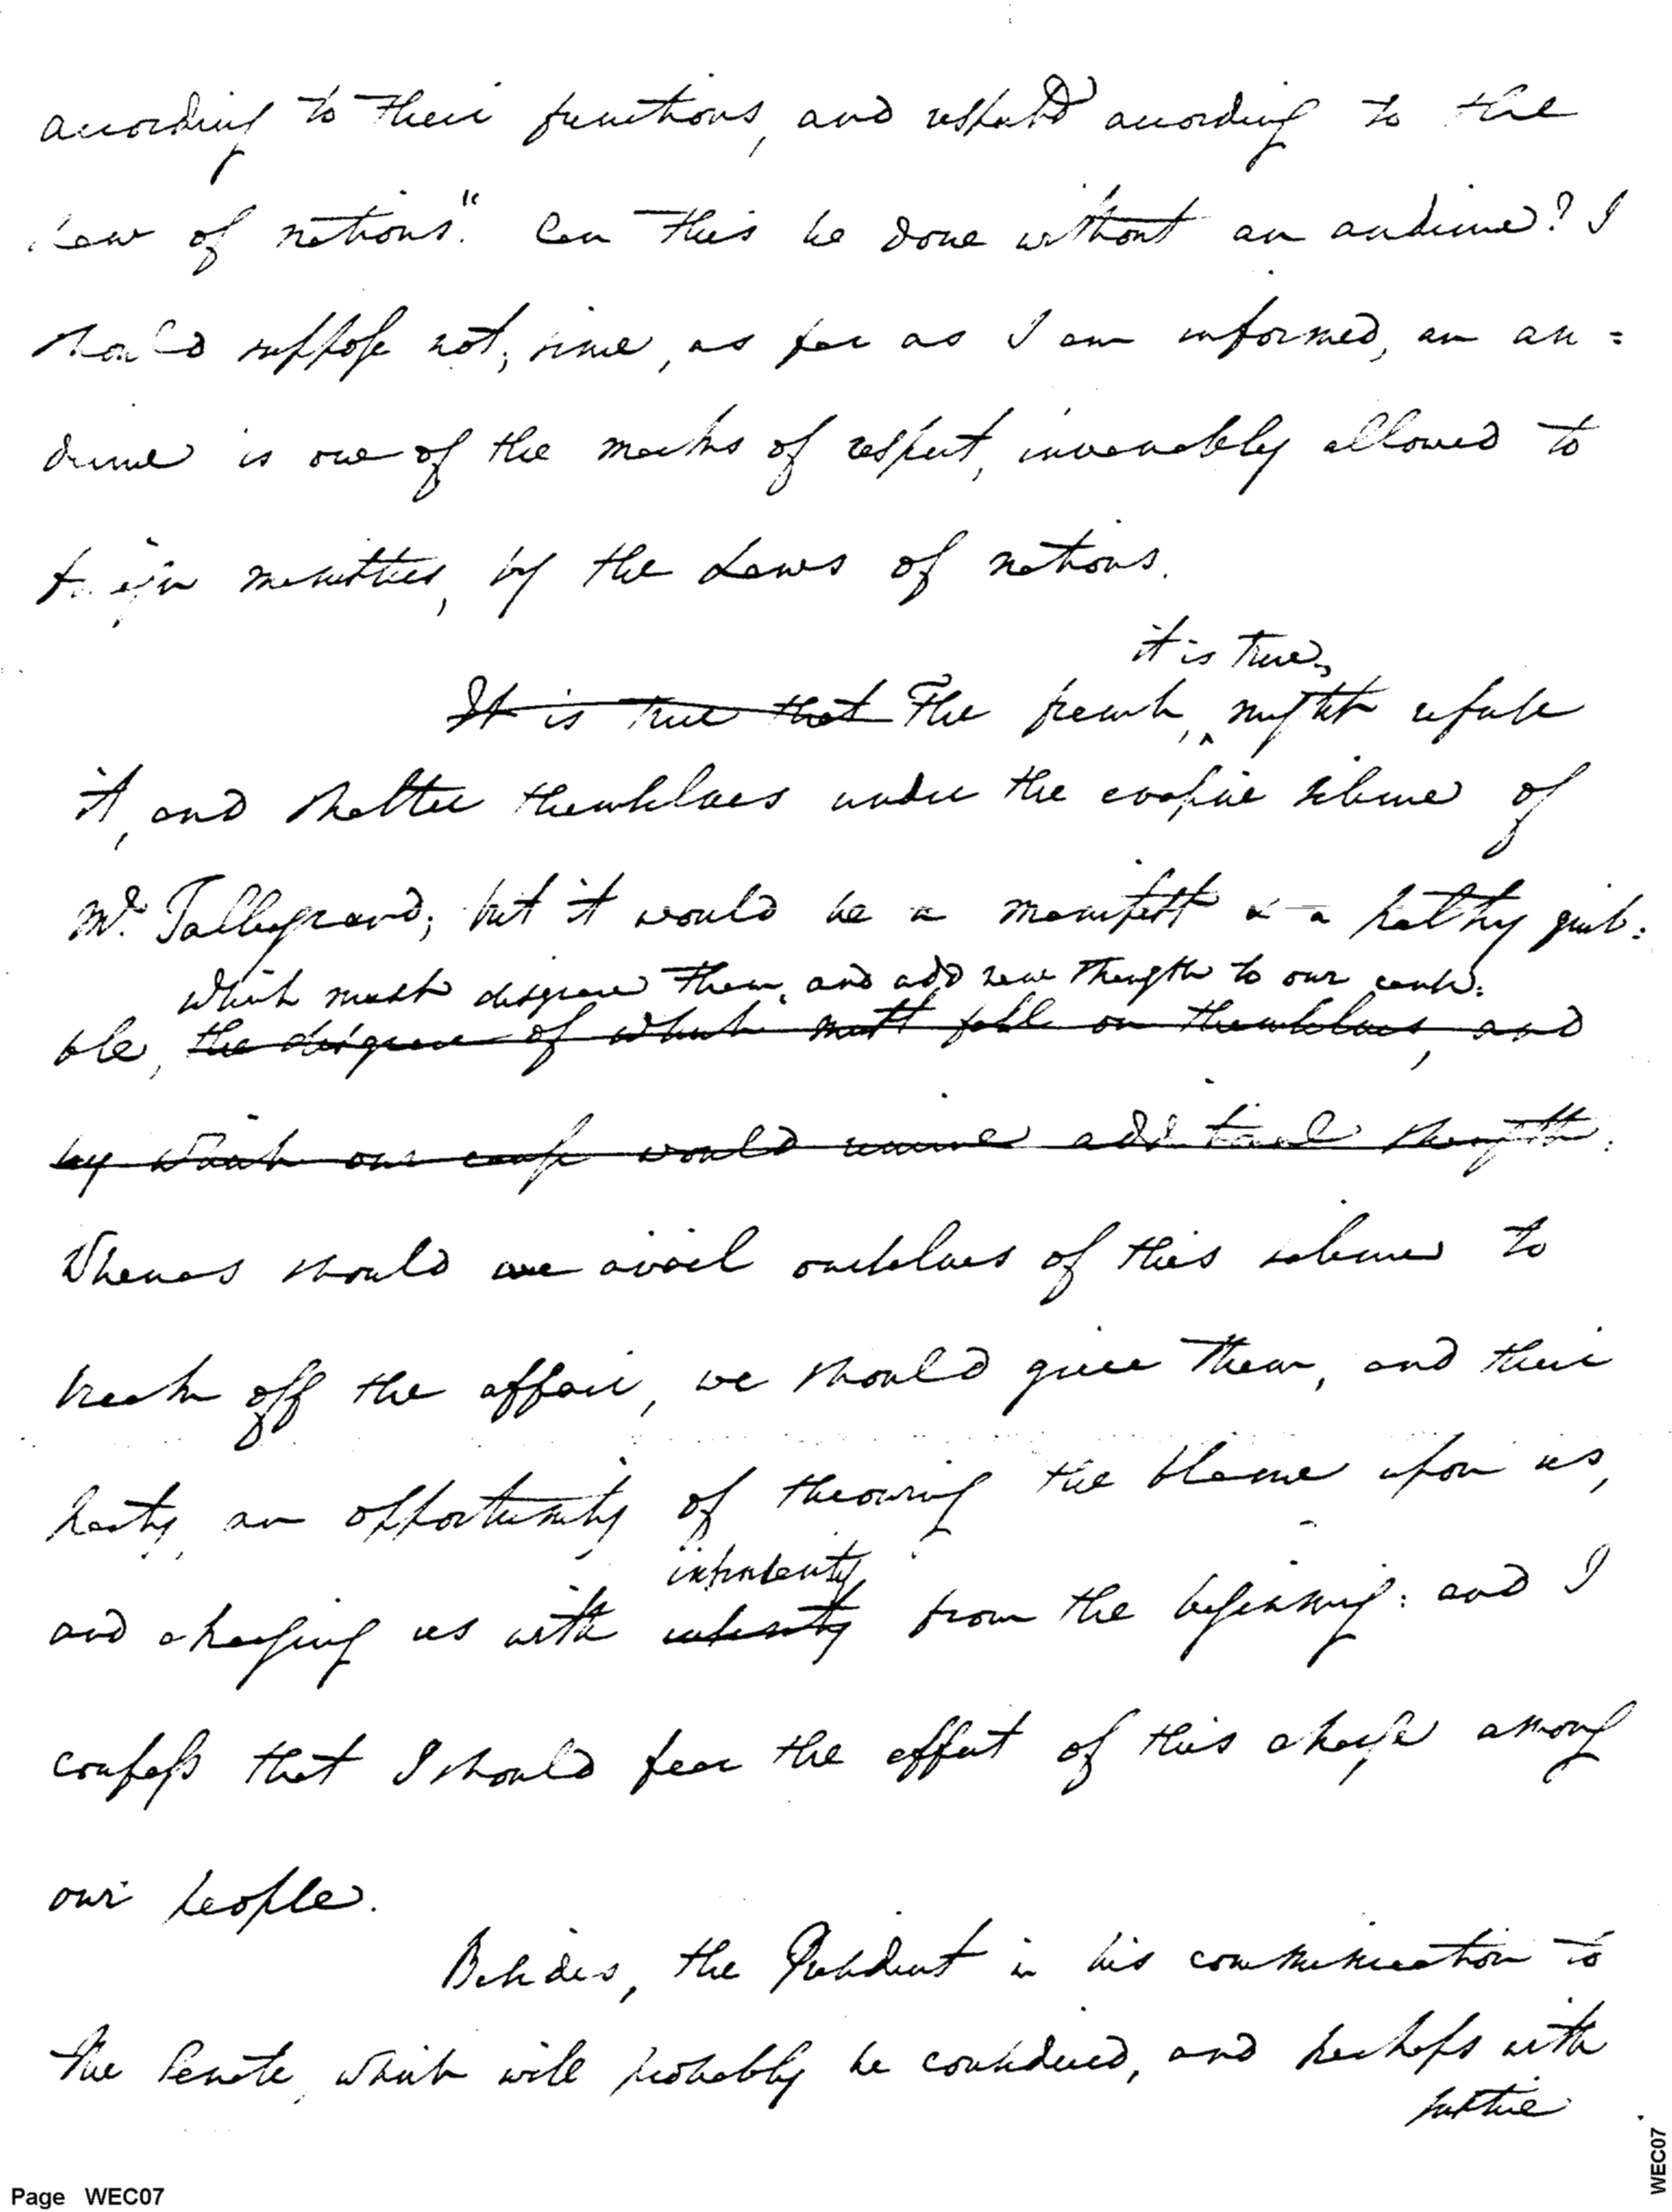 according to their functions, and respected according to the
Law of nations." Can this be done without an audience? I
should suppose not, since, as far as I am informed, an au=
dience is one of the marks of respect, invariably allowed to
foreign ministers, by the Laws of nations.
it is true,
It is true that The french, ^ might refuse
it, and shelter themselves under the evasive silence of
Mr. Talleyrand; but it would be a manifest & a paltry quib:
which must disgrace them, and add new strength to our cause:
ble, the disgrace of which must fall on themselves, and
by which our cause would receive additional strength:
Whereas should we avail ourselves of this silence to
break off the affair, we should give them, and their
party, an opportunity of throwing the blame upon us,
and charging us with insincerity from the beginning: and I
confess that I should fear the effect of this charge among
our people.
Besides, the President in his communication to
the Senate, which will probably be considered, and perhaps with
justice
Page WEC07
WEC07